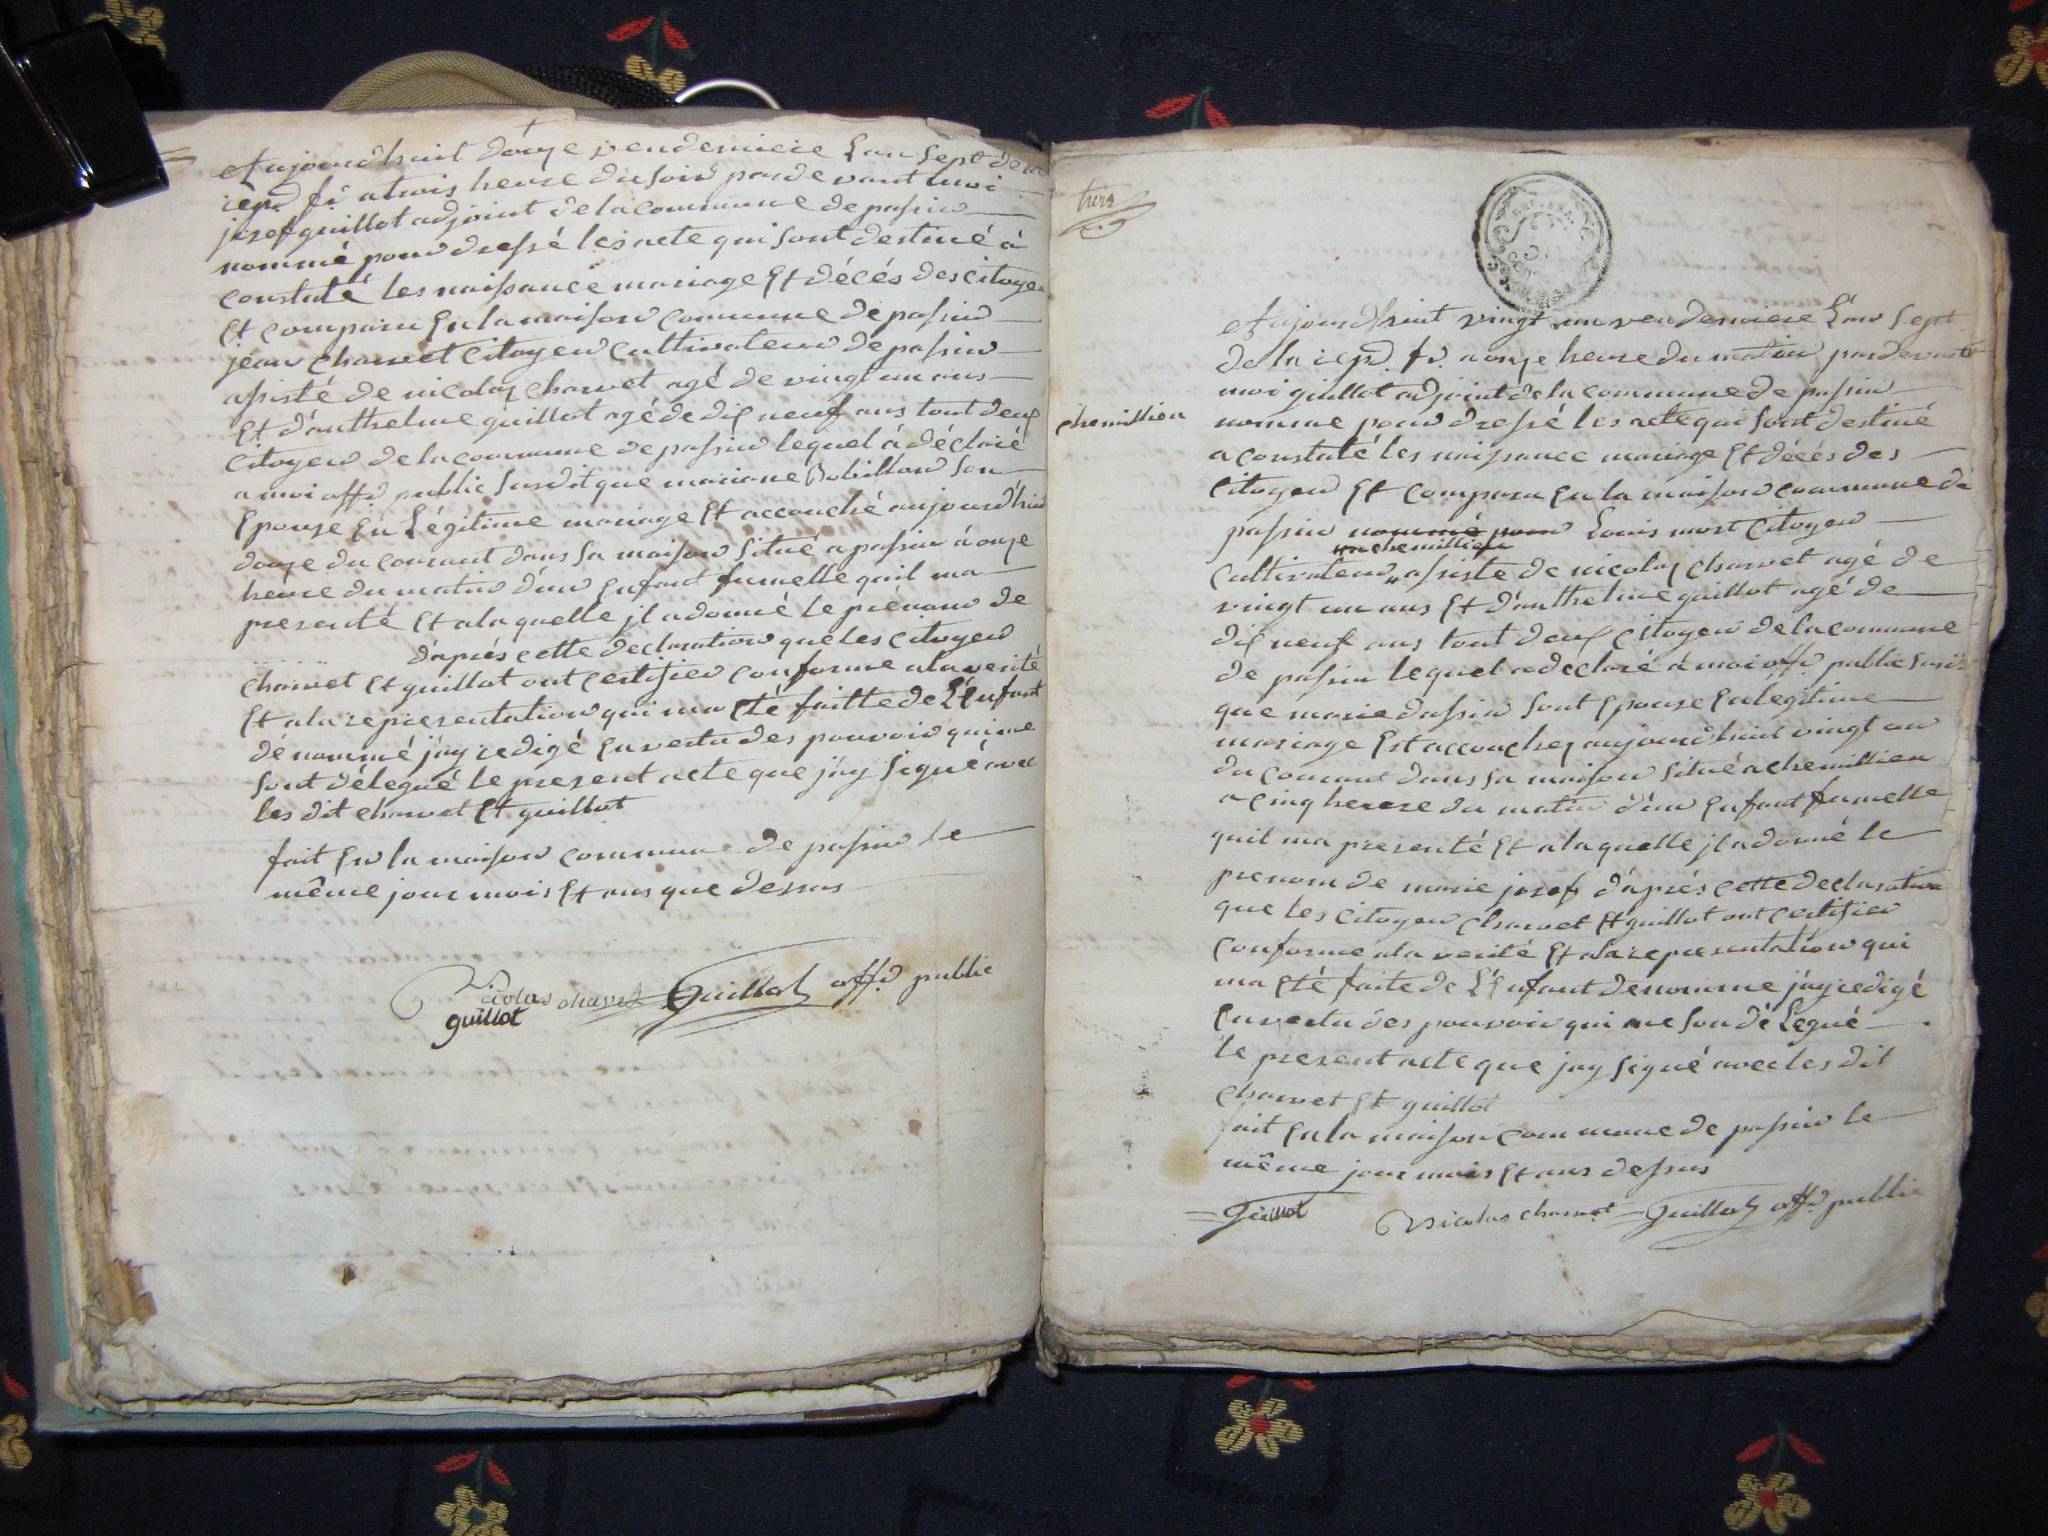 Aujourdhuit douze vendemiere L'an Sept de la
rep.d fr. a trois heure du soird pardevant moi
josef guillot adjoint de la commune de passin
nommé pour dressé les acte qui sont destiné à
constaté les naissance mariage Et décés des citoyen
Et comparu En la maison commune de passin
jean charvet Citoyen cultivateur de passin
assisté de nicolas charvet agé de vingt un ans
Et d'anthelme guillot agé de dix neuf ans tout deux
Citoyen de la commune de passin lequel à déclaré
a moi offr public susdit que mariane Bobillon son
Epouse En Légitime mariage Et accouché aujourd'huit
douze du courant dans sa maison situé a passin à onze
heure du matin d'un Enfant fumelle quil ma
presenté Et a la quelle jl a donné le prénom de
d'après cette declaration que les citoyen
charvet Et guillot ont certifier conforme a la verité
Et a la representation qui ma Eté faitte de L'Enfant
dénommé j'ay redigé En vertu des pouvoir qui me
sont délegué le present acte que j'ay signé avec
les dit charvet Et guillot
fait En la maison commune de passin le
même jour mois Et ans que dessus
Nicolas charvet Guillot offr public
guillot
chemillien
Aujourdhuit vingt un vendemiere L'an Sept
de la rep.d fr. a onze heure du matin pardevant
moi guillot adjoint de la commune de passin
nomme pour dressé les acte qui sont destiné
a constaté les naissance mariage Et décés des
Citoyen Et comparu En la maison commune de
passin nommé pour Louis mort Citoyen
a chemillien
cultivateur assisté de nicolas charvet agé de
vingt un ans Et d'anthelme guillot agé de
dix neuf ans tout deux Citoyen de la commune
de passin lequel a declaré à moi offr public susdit
que marie dassin sont Epouse En legitime
mariage Est accouchez aujourdhuit vingt un
du courant dans sa maison situé a chemillien
a cinq heure du matin d'un Enfant fumelle
quil ma presenté Et a la quelle jl a donné le
prenom de marie josef d'après cette declaration
que les citoyen charvet Et guillot ont certifier
conforme a la verité Et a la representation qui
ma Eté faite de L'Enfant denomme j'ay redigé
En vertu des pouvoir qui me son délegué
le present acte que jay signé avec les dit
charvet Et guillot
fait En la maison commune de passin le
même jour mois Et ans dessus
Guillot Nicolas charvet Guillot offr public